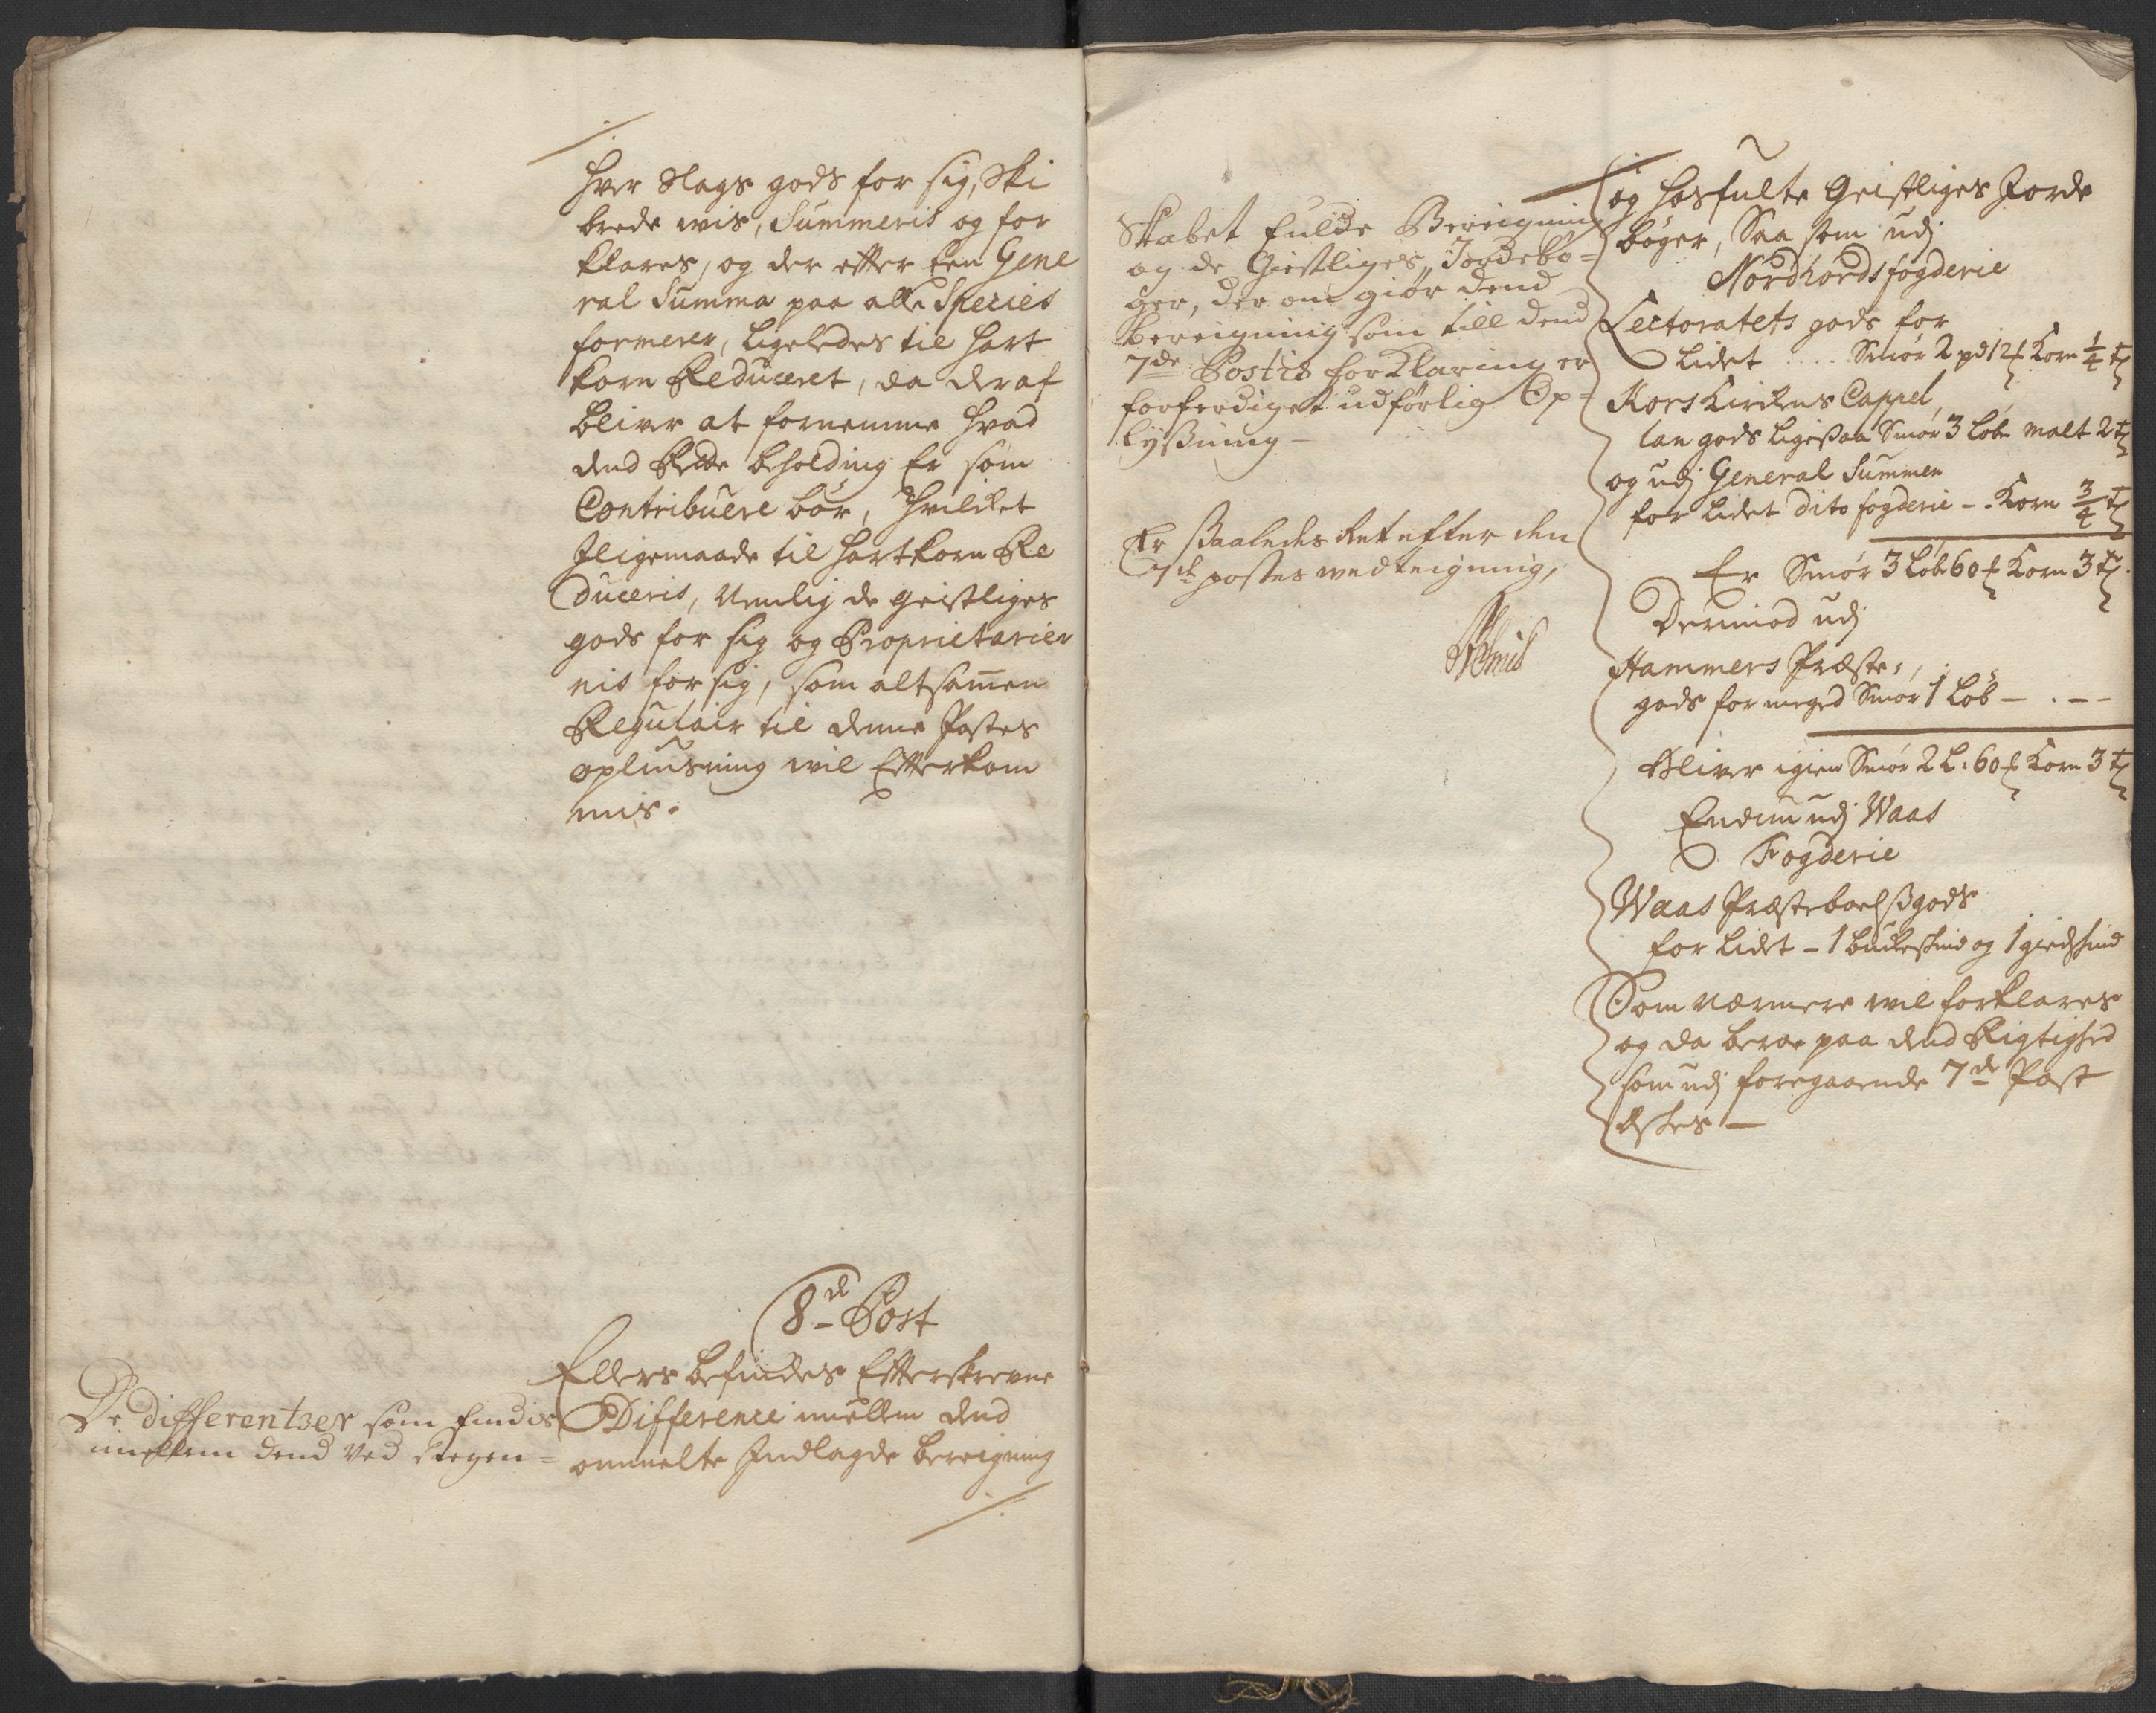 hver Slags gods for sig, Ski
brede wis, Summeris og for
klares, og der effter een Gene
ral Summa paa alle Species
formerer, ligeledes til hart
korn Reduceret, da deraf
bliver at fornemme hvad
dend Rette beholding Er som
Contribuere bør, Hvilcket
Jligemaade til hartkorn Re
duceris, Nemlig de geistliges
gods for sig og Proprietarier
nis for sig, som altsamen
Regulair til denne Postes
opliusning wil Efterkom
mis.
8de Post
Ellers befindes Efterskrevne
Difference imellem dend
ommelte Jndlagde bereigning
De differentzer som findis
imellem dend ved Regen=
Skabet fulde Bereigning
og de Giestliges Jordebø=
ger, der om giør dend
bereigning som till dend
7de Postis forklaring er
forferdiget udførlig Op=
lyßning -
Er ßaaledes Ret efter den
7de postes wedteigning,
og hosfulte Geistliges Jorde
bøger, Saa som udj
Nordhords fogderie
Lectoratets gods for
lidet .... Smør 2 pd 12 £ Korn 1/4 t
Kors Kirkens Cappel
lan gods ligeßaa Smør 3 løbe malt 2 t
og udj General Summen
for lidet dito fogderie - . Korn 3/4 t
Er Smør 3 løb 60 £ Korn 3 t
Derimod udj
Hammers Præste,
gods for meged Smør 1 løb - . - -
Bliver igien Smør 2 L: 60 £ Korn 3 t
Endnu udj Waas
Fogderie
Waas Præsteboelßgods
for lidet - 1 buckeskind og 1 giedskind
Som nærmere wil forklares
og da beroe paa dend Rigtighed
som udj foregaaende 7de Post
Eskes -